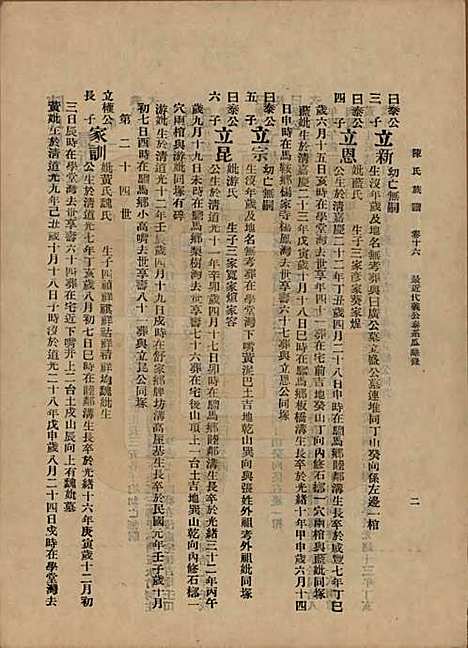 陳氏族譜 卷十六 二
曰泰公
三子 立新 幼亡無嗣
生沒年歲及地名無考葬與曰廣公墓立盛公墓連堆同丁山癸向係左邊一棺
曰泰公
四子 立恩 妣藍氏 生子三家彥家葵家煋
公生於清嘉慶二十二年丁丑歲四月二十八日申時在騸馬鄉睦鄰溝生長卒於咸豐七年丁巳
歲六月十五日亥時在學堂灣去世享壽四十一葬在宅下前吉地癸山丁向內修石槨一穴兩棺與藍妣同塚
藍妣生於清嘉慶二十三年戊寅歲十月十八日巳時在騸馬鄉 卒於光緒十年甲申歲六月十四
日申時在馬鞍鄉楊家寺楊鳳灣去世享壽六十七葬與立恩公同塚
曰泰公
五子 立宗 幼亡無嗣
生沒年歲及地名無考葬在學堂灣下嘴黃泥巴土吉地乾山巽向與張姓外祖考外祖同塚
曰泰公
六子 立昆 妣游氏 生子三家寬家煊家容
公生於清道光十一年辛卯歲四月六日卯時在騸馬鄉睦鄰溝生長卒於光緒三十二年丙午
歲九月十九日未時在學堂灣去世享壽七十六葬在宅後山項上一台土吉地巽山乾向內修石槨一
穴兩棺與游妣同塚有碑
游妣生於清道光十二年壬辰歲四月十九日戌時在舒家鄉牌坊溝高屋基生長卒於民國元年壬子歲十月
初七日酉時在騸馬鄉小高嘴去世享壽八十一葬與立昆公同塚
第二十四世
立權公
長子 家訓 妣黃氏魏氏 生子四禎祥祺祥祜祥禎祥均魏妣生
公生於清道光七年丁亥歲八月初七日巳時在騸馬鄉睦鄰溝生長卒於光緒十六年庚寅歲十二月初
三日辰時在學堂灣去世享壽六十四葬在宅近下嘴井上一台土戌山辰向上有魏妣墓
黃妣生於清道光九年己丑歲十月十八日子時沒於道光二十八年戊申歲八月二十四日戌時在學堂灣去